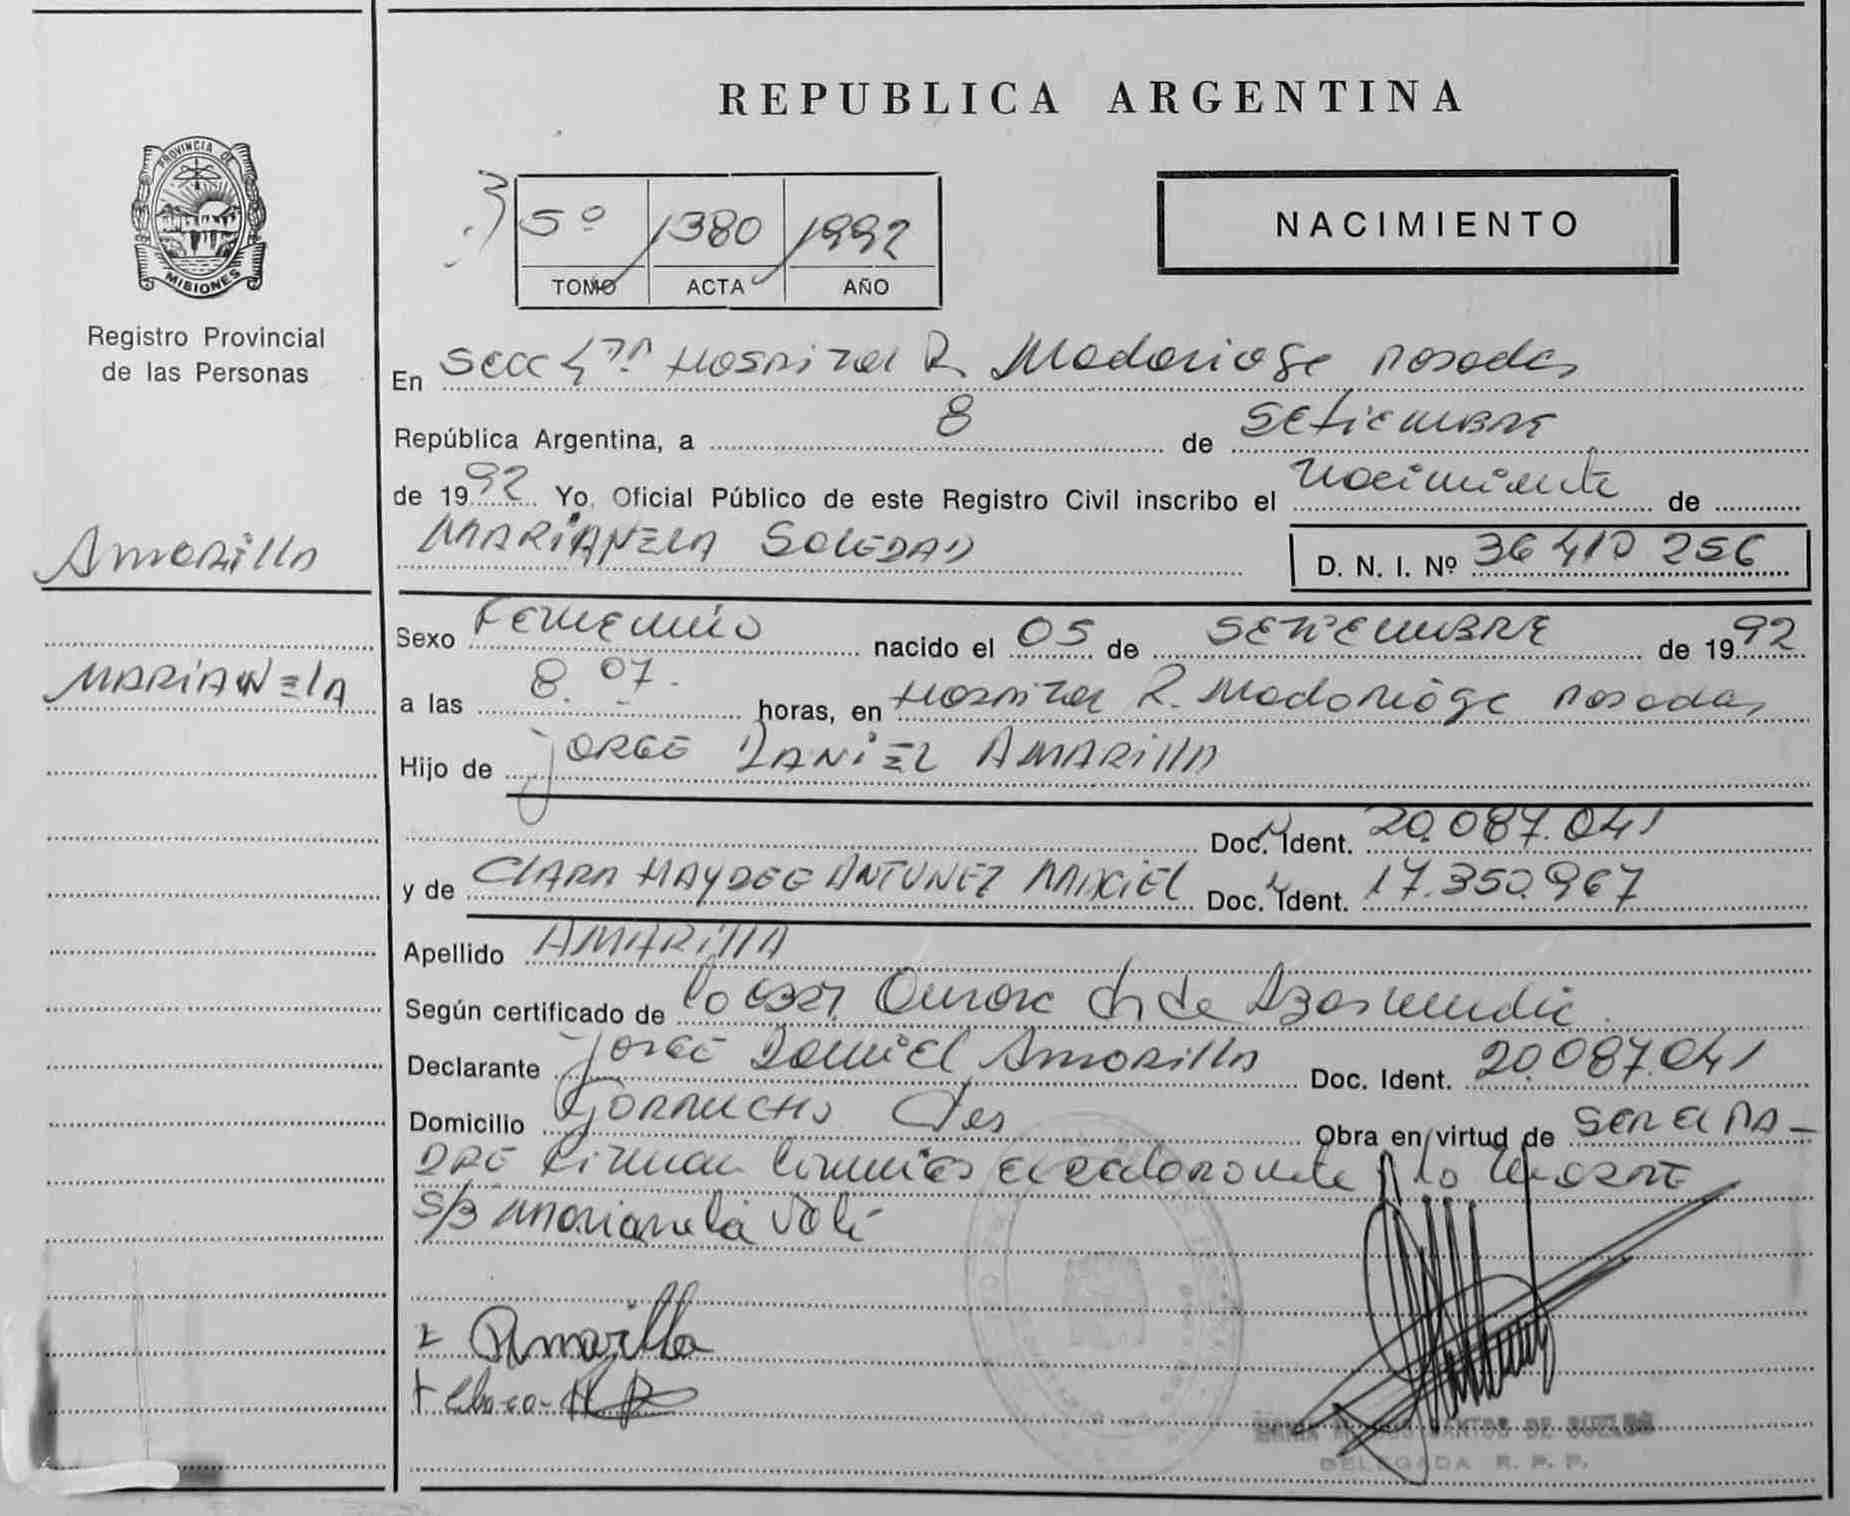 REPUBLICA ARGENTINA
PROVINCIA DE MISIONES
Registro Provincial
de las Personas
NACIMIENTO
5º 1380 1992
TOMO ACTA AÑO
En Secc 4ta Hospital R. Madariaga Posadas
República Argentina, a 8 de Setiembre
de 1992 Yo, Oficial Público de este Registro Civil inscribo el nacimiento de
MARIANELA SOLEDAD D. N. I. Nº 36 410 256
Amarilla
MARIANELA
Sexo Femenino nacido el 05 de SETIEMBRE de 1992
a las 8.07. horas, en Hospital R. Madariaga Posadas
Hijo de JORGE DANIEL AMARILLA
Doc. Ident. 20.087.041
y de CLARA HAYDEE ANTUNEZ MACIEL Doc. Ident. 17.350.967
Apellido AMARILLA
Según certificado de la Aurora de
Declarante Jorge Daniel Amarilla Doc. Ident. 20.087.041
Domicilio Obra en virtud de SER EL PA-
DRE Firman el declarante y la MADRE
S/B Marianela Vale
Amarilla
SANTOS DE
DELEGADA R. P. P.